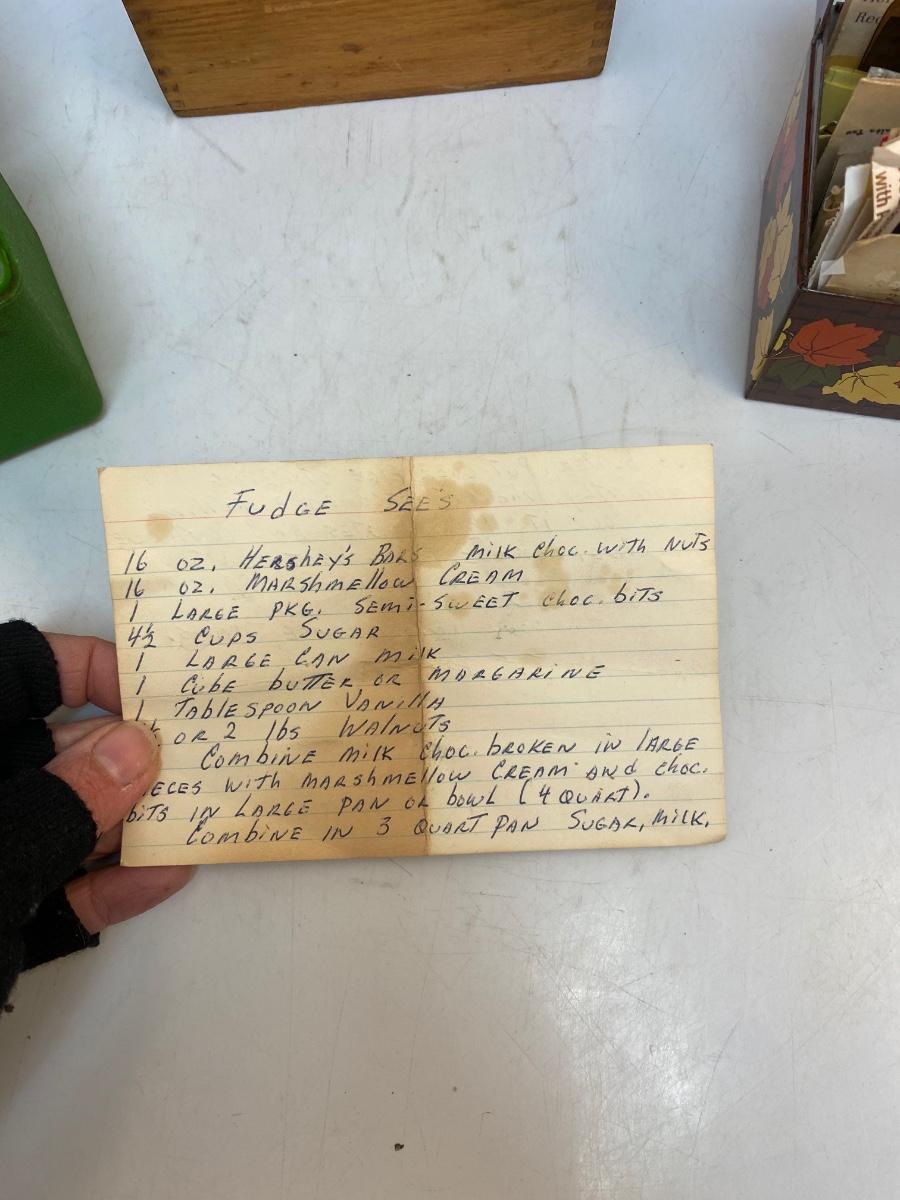 Fudge See's
16 oz. Hershey's Bars milk choc. with nuts
16 oz. Marshmellow Cream
1 Large pkg. Semi-Sweet choc. bits
4½ cups Sugar
1 Large can milk
1 Cube butter or margarine
1 Tablespoon Vanilla
or 2 lbs Walnuts
Combine milk choc. broken in large
ieces with marshmellow cream and choc.
bits in large pan or bowl (4 quart).
Combine in 3 quart pan sugar, milk,
with
Rec